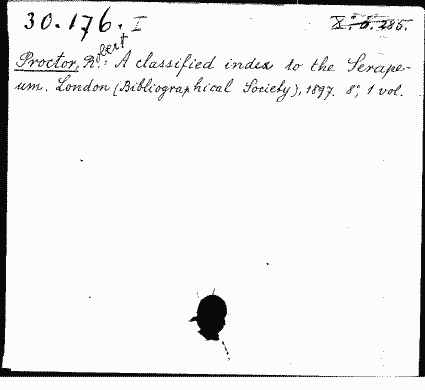 30.176. I
Proctor, Robert: A classified index to the Serape-
um. London (Bibliographical Society), 1897. 8°, 1 vol.